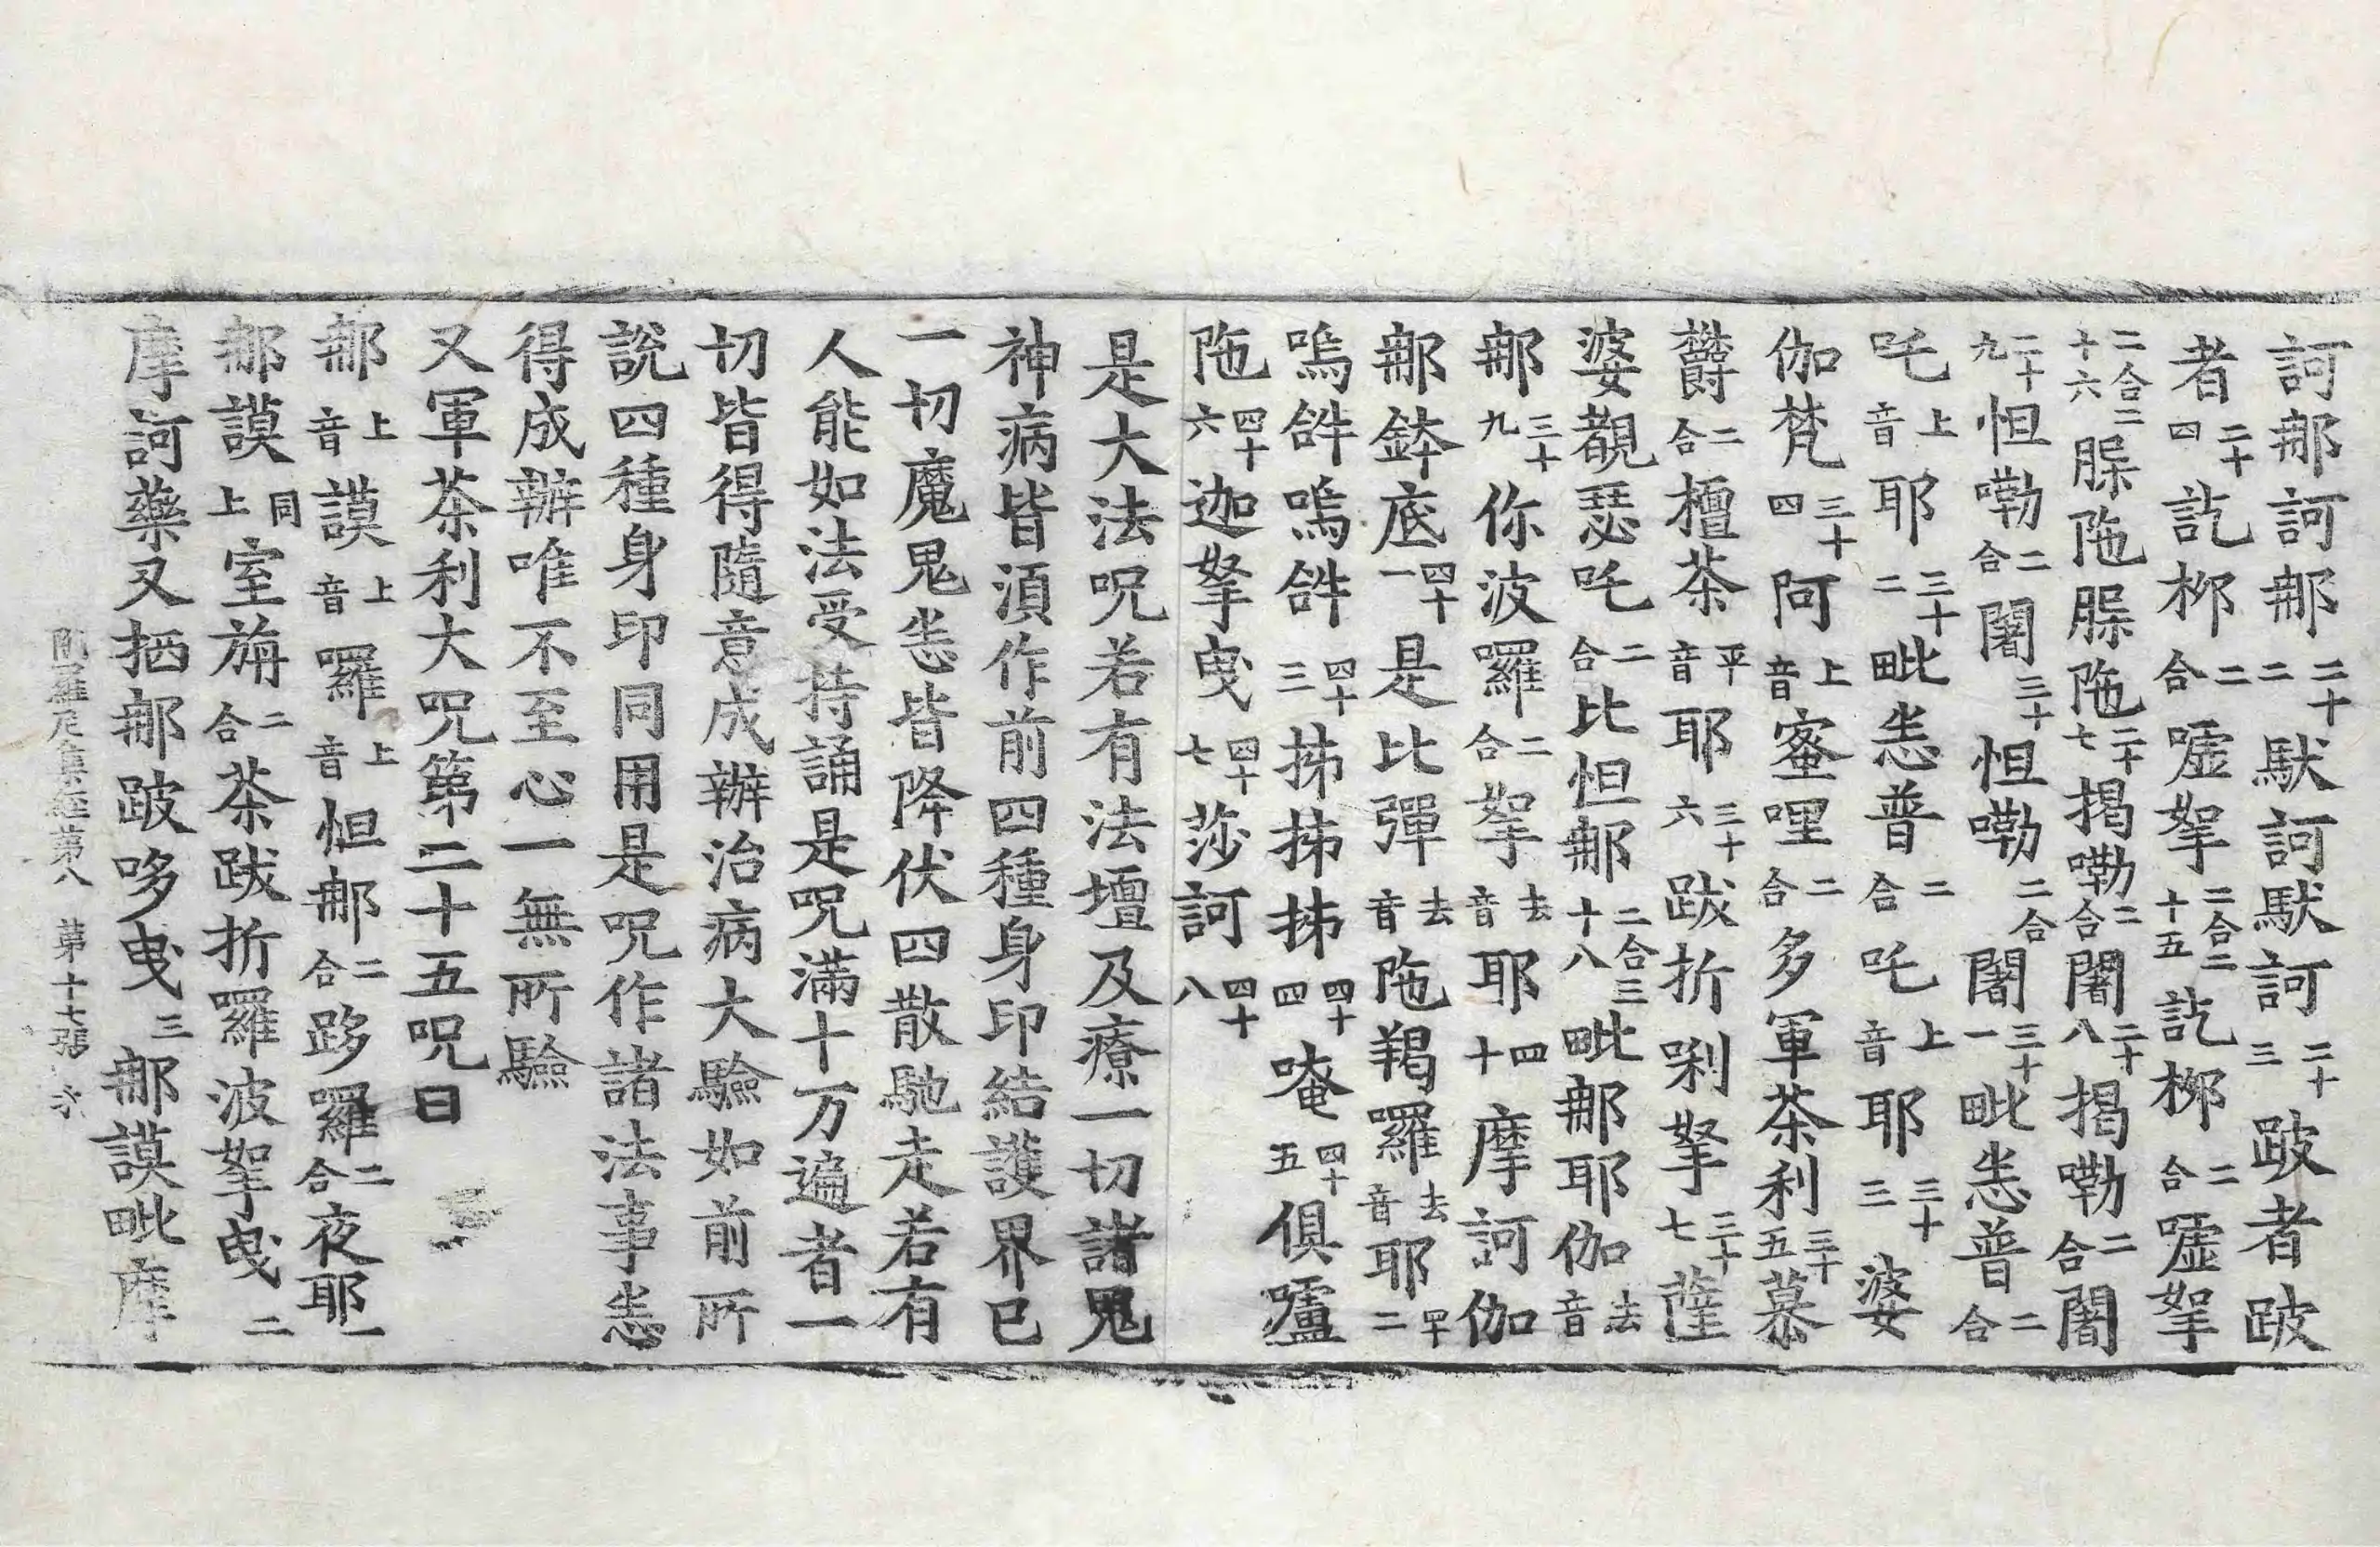 訶那訶那二十二馱訶馱訶二十三跛者跛
者二十四訖栁二合噓拏二合二十五訖栁二合噓拏
二合二十六䐗陁䐗陁二十七揭嘞二合闍二十八揭嘞二合闍
二十九怛嘞二合闍三十怛嘞二合闍三十一毗悉普二合
吒上音耶三十二毗悉普二合吒上音耶三十三婆
伽梵三十四阿上音蜜哩二合多軍茶利三十五慕
欝二合檀茶平音耶三十六跋折唎拏三十七薩
婆覩瑟吒二合比怛那二合三十八毗那耶伽去音
那三十九你波囉二合拏去音耶四十摩訶伽
那鉢底四十一是比彈去音陁羯囉去音耶四十二
嗚𤙖嗚𤙖四十三抹抹抹四十四唵四十五俱嚧
陁四十六迦拏曳四十七莎訶四十八
是大法呪若有法壇及療一切諸鬼
神病皆湏作前四種身印結護界已
一切魔鬼悉皆降伏四散馳走若有
人能如法受持誦是呪滿十万遍者一
切皆得隨意成辦治病大驗如前所
說四種身印同用是呪作諸法事悉
得成辦唯不至心一無所驗
又軍茶利大呪第二十五呪曰
那上音謨上音囉上音怛那二合跢羅二合夜耶一
那謨同上室旃二合茶跋折羅波拏曳二
摩訶藥叉栖那跛哆曳三那謨毗摩
陁羅尼集經第八　第十七張